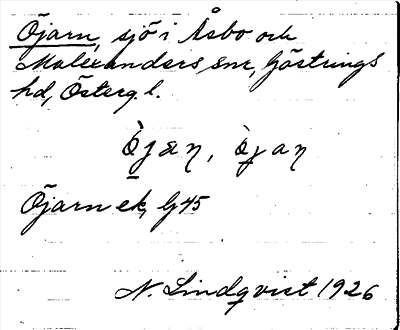 Öjarn, sjö i Åsbo och
Malexanders snr, Göstrings
hd, Österg. l.
Öjarn ek, G45
N. Lindqvist 1926